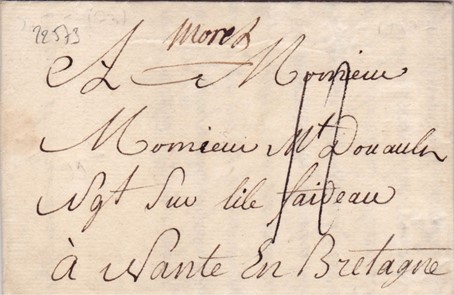 22573
Moret
A Monsieur
Monsieur Mt Douault
Ngt Sur lile faideau
à Nante En Bretagne